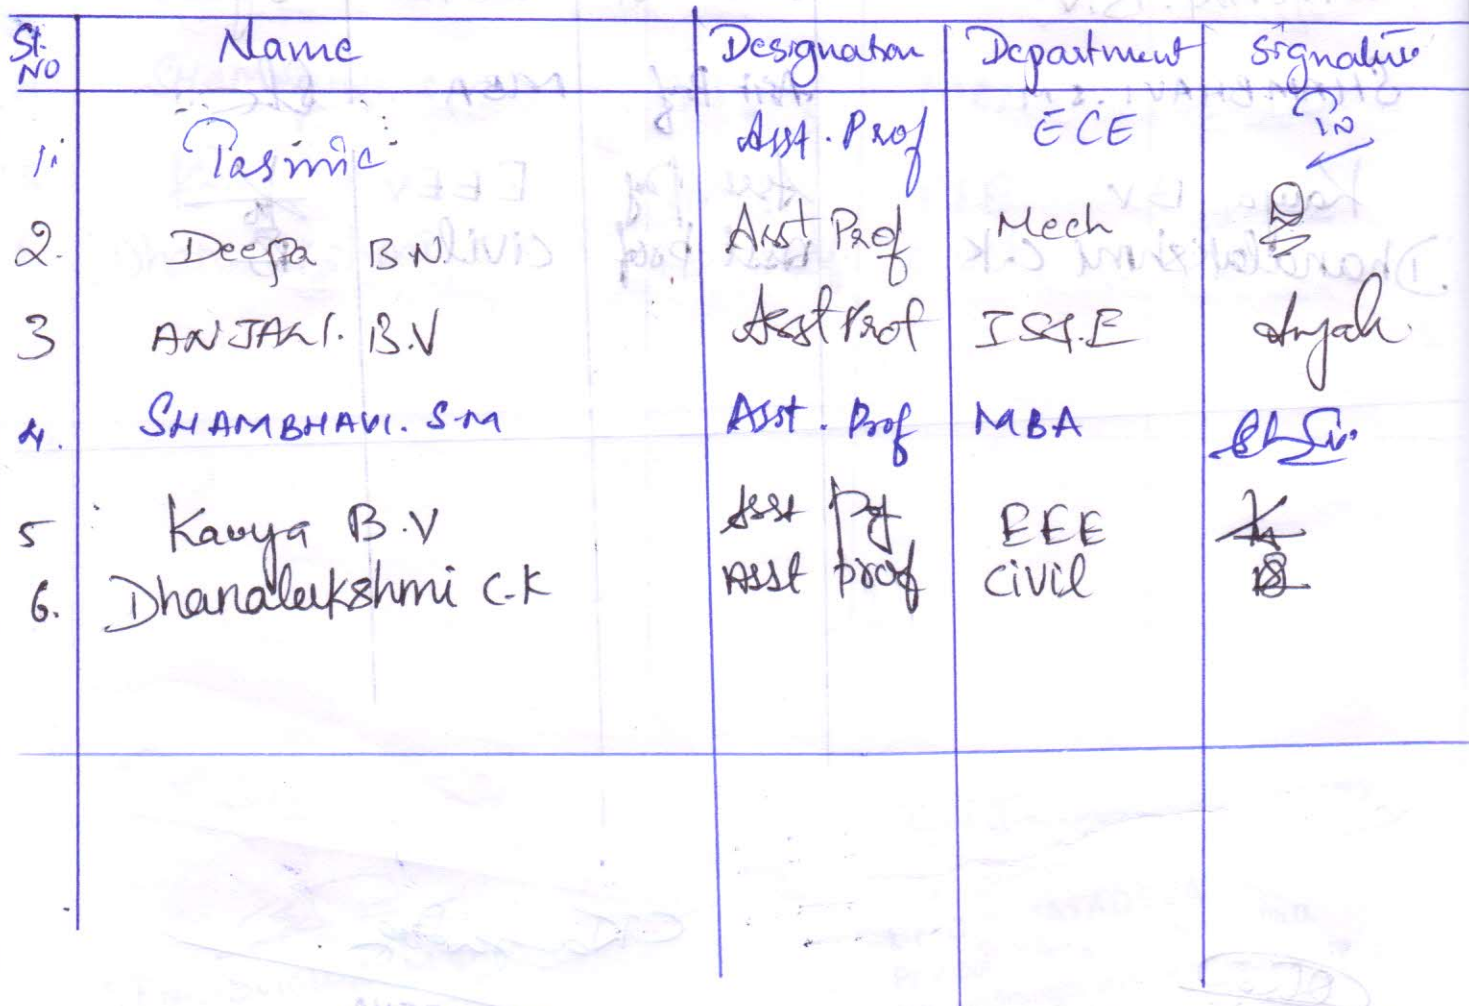 Sl. NO Name Designation Department Signature
1. Tasmia Asst. Prof ECE
2. Deepa B.N. Asst Prof Mech
3 ANJALI. B.V Asst Prof IS&E Anjali
4. SHAMBHAVI. S.M Asst. Prof MBA
5 Kavya B.V Asst Prof EEE
6. Dhanalakshmi C.K Asst prof civil